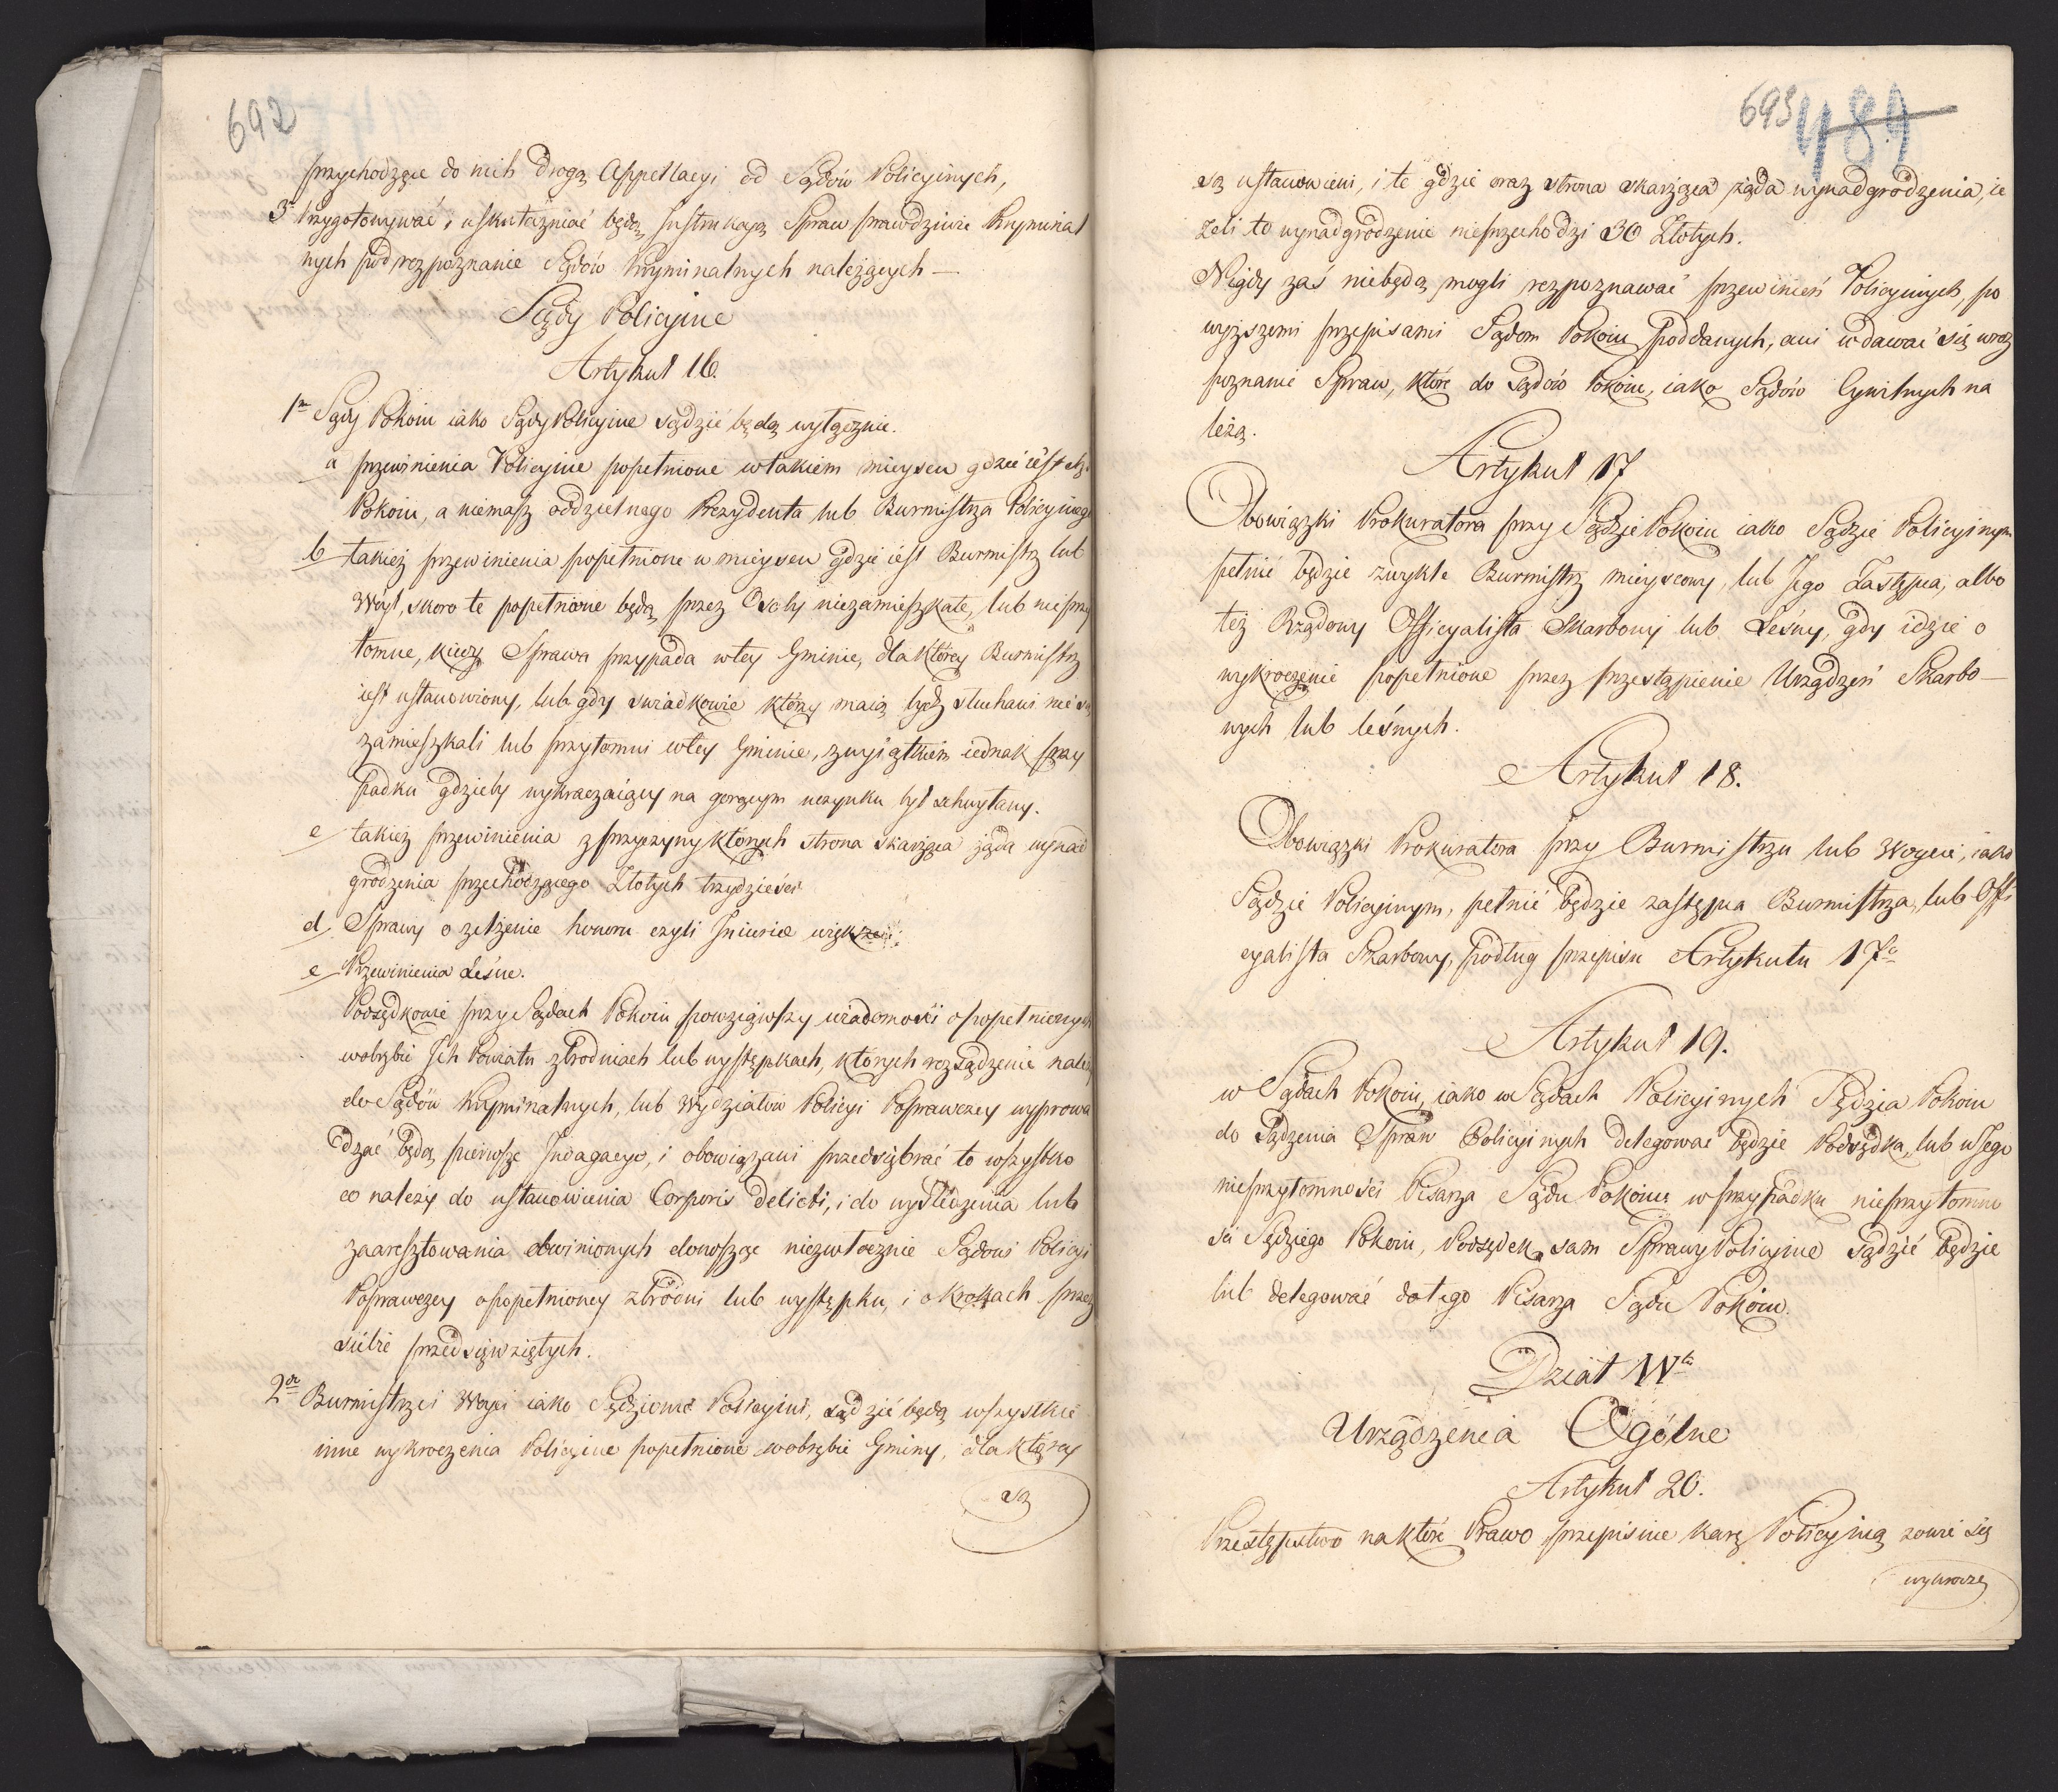 692
przychodzące do nich drogą Appellacyi od Sądów Policyinych,
3° Przygotowywać, i uskuteczniać będą Instrukcyą Spraw prawdziwie Kryminal
nych pod rozpoznanie Sądów Kryminalnych należących —
Sądy Policyine
Artykuł 16.
1m Sądy Pokoiu iako Sądy Policyine sądzić będą wyłącznie.
a przewinienia Policyine popełnione w takiem mieyscu gdzie iest
Pokoiu, a niemasz oddzielnego Prezydenta lub Burmistrza Policyinego
b takież przewinienia popełnione w mieyscu gdzie iest Burmistrz lub
Wóyt, skoro te popełnione będą przez Osoby niezamieszkałe, lub nieprzy
tomne, kiedy Sprawa przypada w tey Gminie, dla którey Burmistrz
iest ustanowiony, lub gdy swiadkowie którzy maią bydź słuchani nie są
zamieszkali lub przytomni w tey Gminie, z wyiątkiem iednak przy
padku gdzieby wykraczaiący na gorącym uczynku był schwytany.
c takież przewinienia z przyczyny których strona skarżąca żąda wynad
grodzenia przechodzącego Złotych trzydzieści
d Sprawy o zelżenie honoru czyli Iniurie większe
e Przewinienia Leśne.
Podsędkowie przy Sądach Pokoiu powziąwszy wiadomości o popełnionych
w obrębie Ich Powiatu zbrodniach lub występkach, których rozsądzenie należy
do Sądów Kryminalnych, lub Wydziałów Policyi Poprawczey wyprowa
dzać będą pierwsze Indagacye, i obowiązani przedsiębrać to wszystko
co należy do ustanowienia Corporis Delicti, i do wyśledzenia lub
zaaresztowania obwinionych donosząc niezwłocznie Sądowi Policyi
Poprawczey o popełnioney zbrodni lub występku, i o krokach przez
siebie przedsięwziętych.
2do Burmistrze i Wóyci iako Sędziowie Policyini, sądzić będą wszystkie
inne wykroczenia Policyine popełnione w obrębie Gminy, dla którey
są
693 484
są ustanowieni, i te gdzie oraz strona skarżąca żąda wynadgrodzenia, ie
żeli to wynadgrodzenie nieprzechodzi 30 Złotych.
Nigdy zaś niebędą mogli rozpoznawać przewinień Policyinych po
wyższemi przepisami Sądom Pokoiu poddanych, ani wdawać się w roz
poznanie Spraw, które do Sądów Pokoiu, iako Sądów Cywilnych na
leżą.
Artykuł 17
Obowiązki Prokuratora przy Sądzie Pokoiu iako Sądzie Policyinym
pełnić będzie zwykle Burmistrz mieyscowy, lub Jego Zastępca, albo
też Rządowy Officyalista Skarbowy lub Leśny, gdy idzie o
wykroczenie popełnione przez przestąpienie Urządzeń Skarbo—
wych lub leśnych.
Artykuł 18.
Obowiązki Prokuratora przy Burmistrzu lub Woycie, iako
Sądzie Policyinym, pełnić będzie zastępca Burmistrza, lub Offi
cyalista Skarbowy, podług przepisu Artykułu 17go
Artykuł 19.
w Sądach Pokoiu, iako w Sądach Policyinych Sędzia Pokoiu
do Sądzenia Spraw Policyinych delegować będzie Podsędka, lub w Jego
nieprzytomności Pisarza Sądu Pokoiu, w przypadku nieprzytomno
ści Sędziego Pokoiu, Podsędek sam Sprawy Policyine sądzić będzie
lub delegować do tego Pisarza Sądu Pokoiu.
Dział IVty
Urządzenia Ogólne
Artykuł 20.
Przestępstwo na które Prawo przepisuie karę Policyiną zowie się
wykrocze